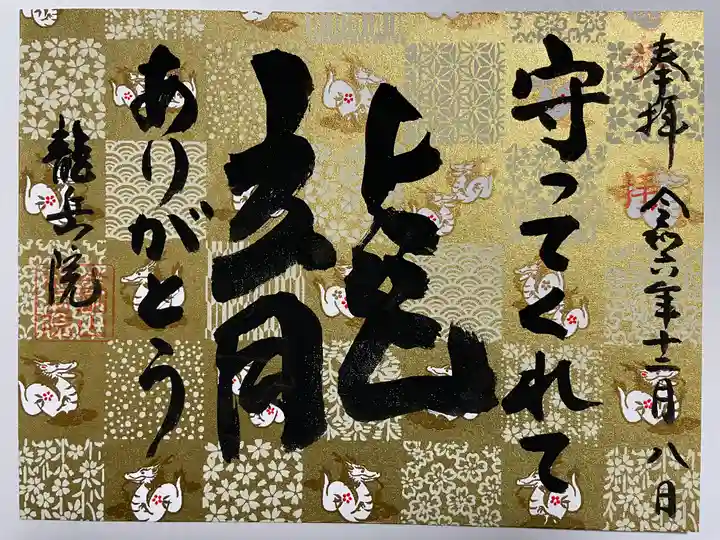 奉拝 令和六年十二月八日
守ってくれて
龍
ありがとう
龍岳院